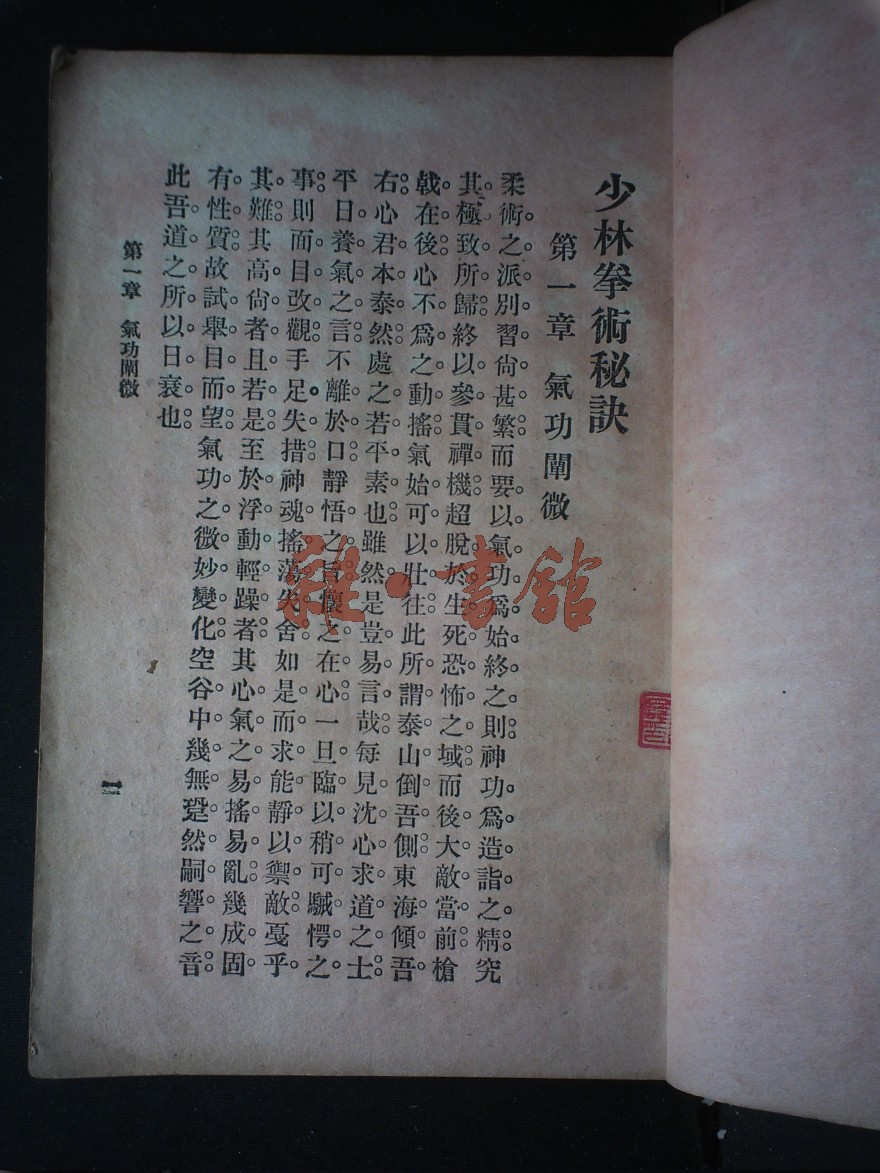 少林拳術秘訣
第一章 氣功闡微
柔術之派別。習尚甚繁。而要以氣功爲始終之則。神功爲造詣之精。究
其極致所歸。終以參貫禪機。超脫於生死恐怖之域。而後大敵當前。槍
戟在後。心不爲之動搖。氣始可以壯往。此所謂泰山倒吾側。東海傾吾
右。心君本泰然處之若平素也。雖然。是豈易言哉。每見沈心求道之士。
平日養氣之言。不離於口。靜悟之旨。懷之在心。一旦臨以稍可駴愕之
事。則面目改觀。手足失措。神魂搖蕩失舍。如是而求能靜以禦敵。戞乎
其難。其高尙者且若是。至於浮動輕躁者。其心氣之易搖易亂。幾成固
有性質。故試舉目而望。氣功之微妙變化。空谷中幾無跫然嗣響之音。
此吾道之所以日衰也。
第一章 氣功闡微
一
雜·書館